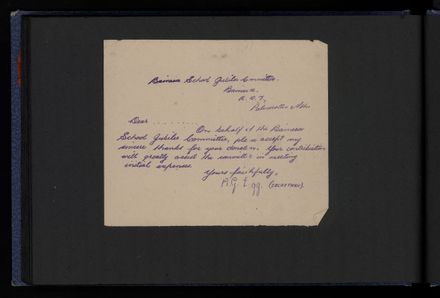 Bainesse School Jubilee Committee.
Bainesse
R. D. 3,
Palmerston Nth.
Dear ..........
On behalf of the Bainesse
School Jubilee Committee, please accept my
sincere thanks for your donation. Your contribution
will greatly assist the committee in meeting
initial expenses.
Yours faithfully,
(SECRETARY).